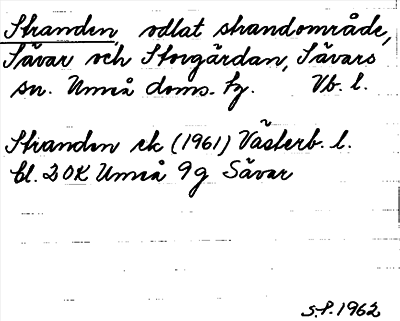 Stranden, odlat strandområde,
Sävar och Storgärdan, Sävars
sn. Umeå doms. tg. Vb. l.
Stranden ek (1961) Västerb. l.
bl. 20K Umeå 9g Sävar
S.P. 1962